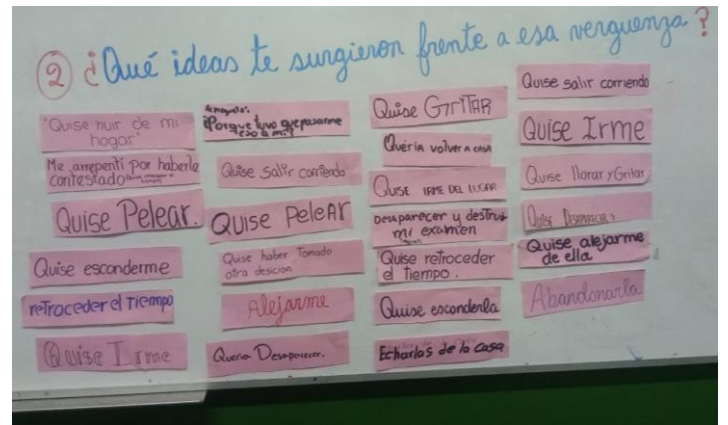 ② ¿Qué ideas te surgieron frente a esa verguenza?
"Quise huir de mi
hogar"
Me arrepentí por haberle
contestado
Quise Pelear.
Quise esconderme
retroceder el tiempo
Quise Irme
Porque tuvo que pasarme
eso a mi
Quise salir corriendo
Quise PeleAr
Quise haber Tomado
otra desicion
Alejarme
Queria Desaparecer.
Quise GriTAR
Quería volver a casa
Quise irme del lugar
Desaparecer y destruir
mi examen
Quise retroceder
el tiempo.
Quise esconderla
Echarlos de la casa
Quise salir corriendo
Quise Irme
Quise llorar y Gritar
Quise Desaparecer
Quise alejarme
de ella
Abandonarla